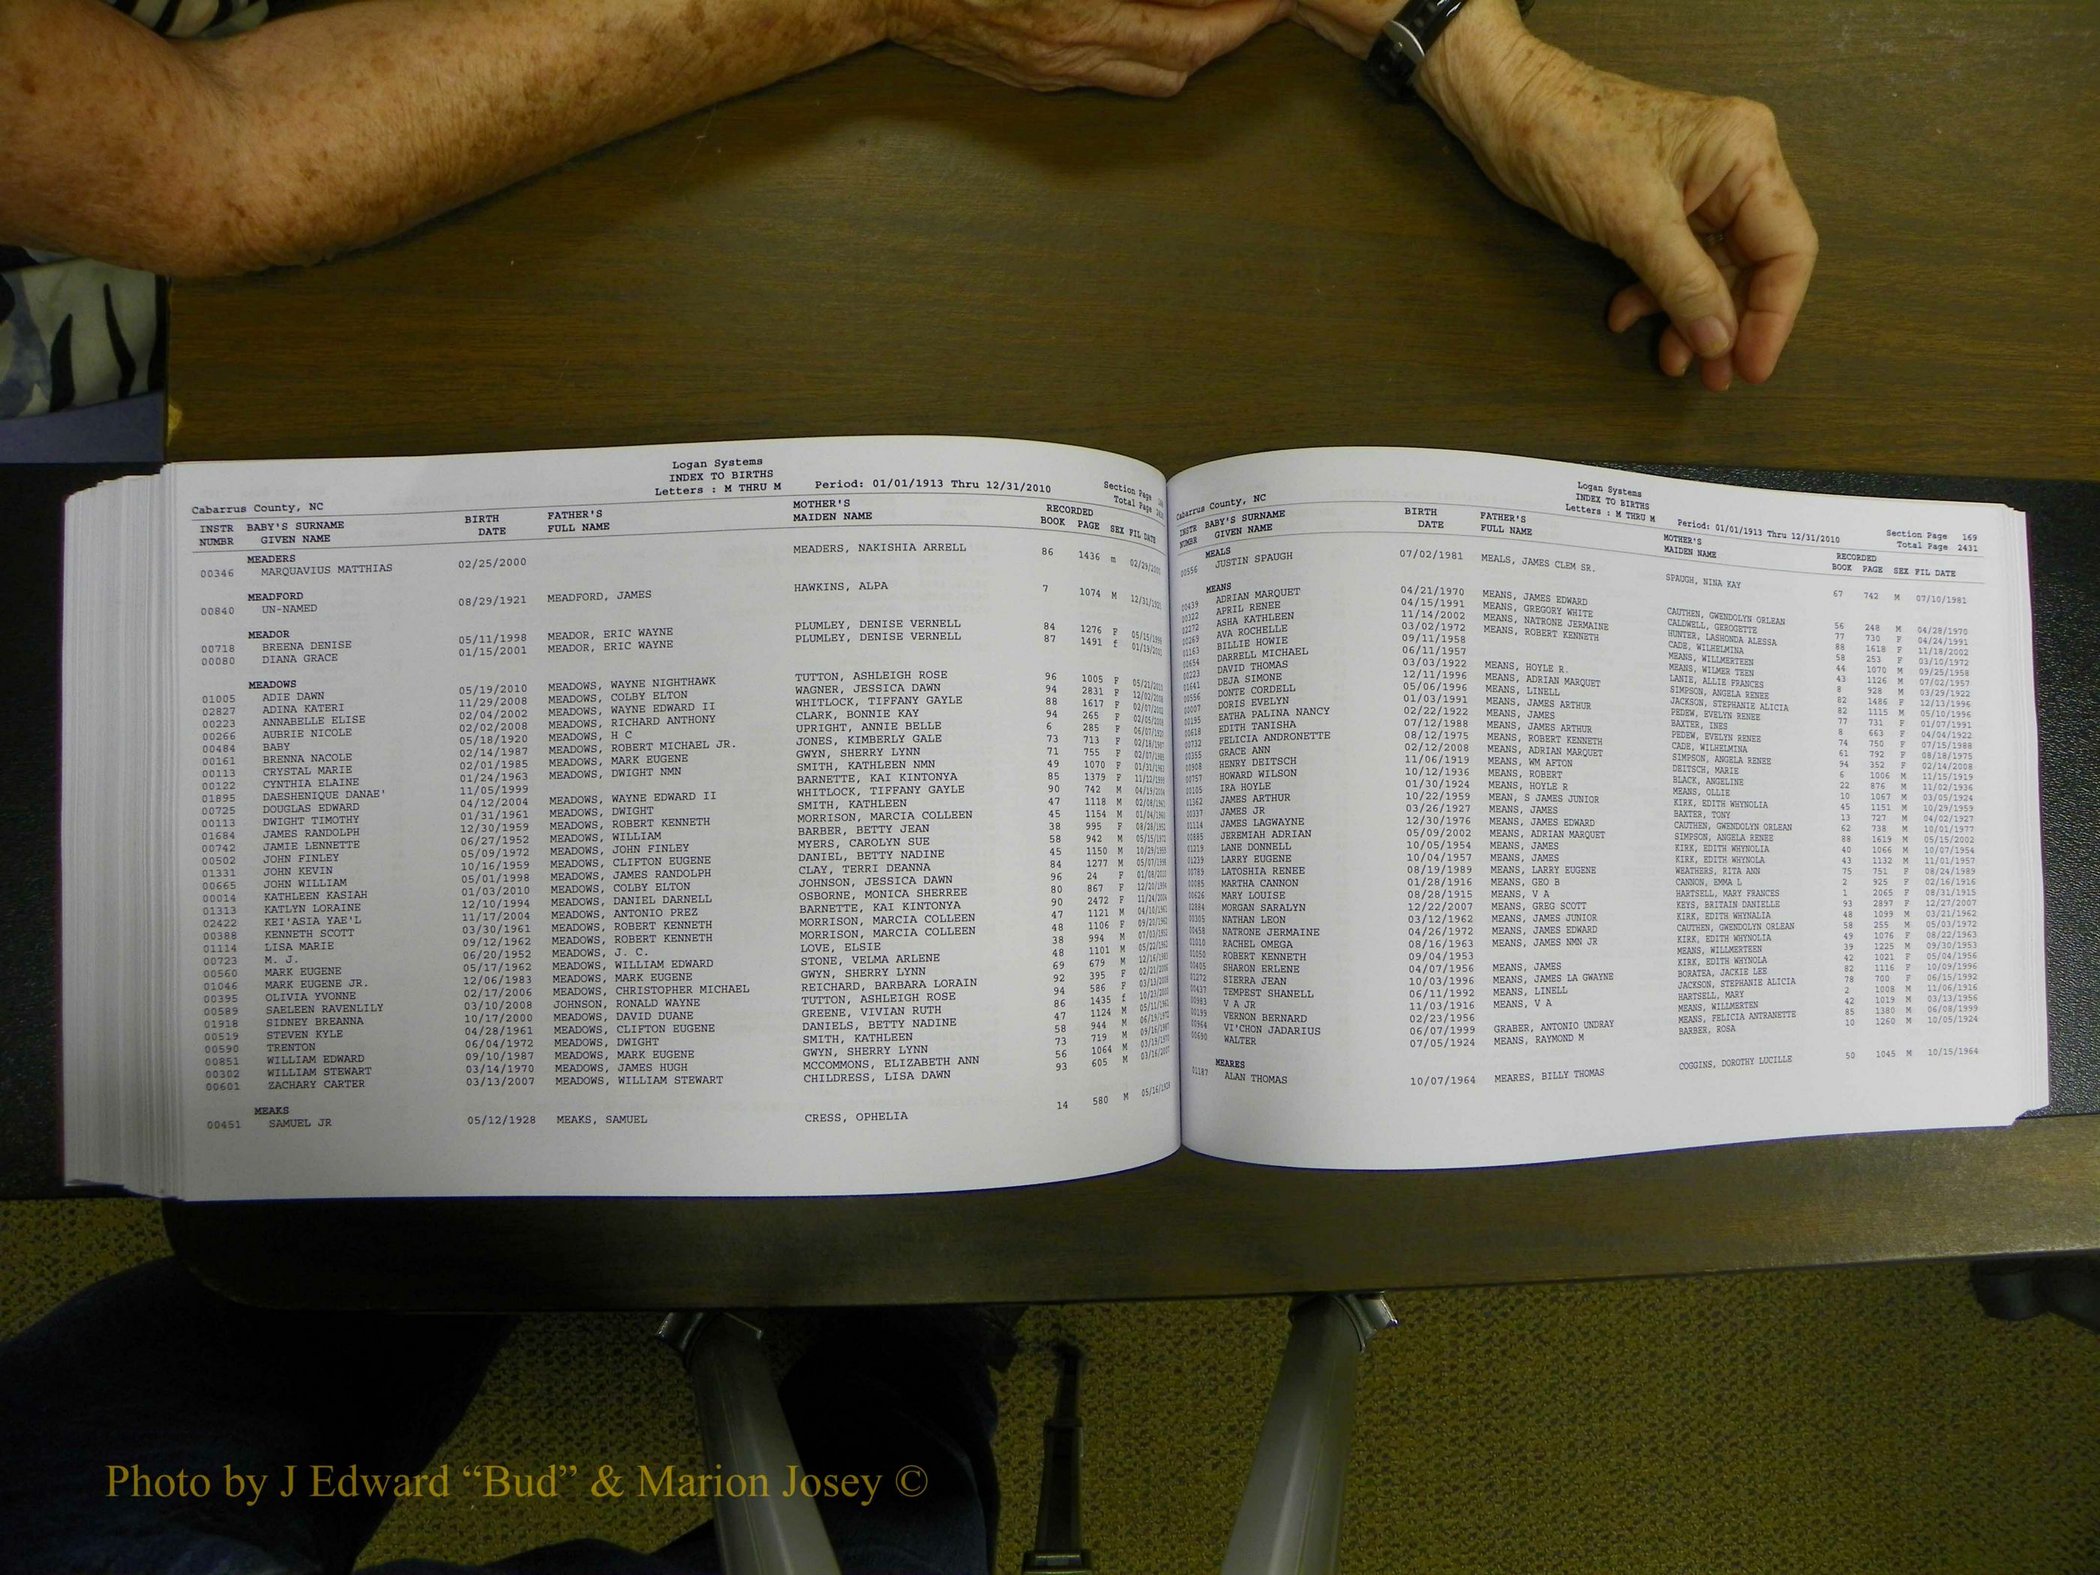 Logan Systems
INDEX TO BIRTHS
Letters : M THRU M
Cabarrus County, NC Period: 01/01/1913 Thru 12/31/2010 Section Page
Total Page
INSTR BABY'S SURNAME BIRTH FATHER'S MOTHER'S RECORDED
NUMBR GIVEN NAME DATE FULL NAME MAIDEN NAME BOOK PAGE SEX FIL DATE
MEADERS
00346 MARQUAVIUS MATTHIAS 02/25/2000 MEADERS, NAKISHIA ARRELL 86 1436 m 02/29/2000
MEADFORD
00840 UN-NAMED 08/29/1921 MEADFORD, JAMES HAWKINS, ALPA 7 1074 M 12/31/1921
MEADOR
00718 BREENA DENISE 05/11/1998 MEADOR, ERIC WAYNE PLUMLEY, DENISE VERNELL 84 1276 F 05/15/1998
00080 DIANA GRACE 01/15/2001 MEADOR, ERIC WAYNE PLUMLEY, DENISE VERNELL 87 1491 f 01/19/2001
MEADOWS
01005 ADIE DAWN 05/19/2010 MEADOWS, WAYNE NIGHTHAWK TUTTON, ASHLEIGH ROSE 96 1005 F 05/21/2010
02827 ADINA KATERI 11/29/2008 MEADOWS, COLBY ELTON WAGNER, JESSICA DAWN 94 2831 F 12/02/2008
00223 ANNABELLE ELISE 02/04/2002 MEADOWS, WAYNE EDWARD II WHITLOCK, TIFFANY GAYLE 88 1617 F 02/07/2002
00266 AUBRIE NICOLE 02/02/2008 MEADOWS, RICHARD ANTHONY CLARK, BONNIE KAY 94 265 F 02/05/2008
00484 BABY 05/18/1920 MEADOWS, H C UPRIGHT, ANNIE BELLE 6 285 F 06/07/1920
00161 BRENNA NACOLE 02/14/1987 MEADOWS, ROBERT MICHAEL JR. JONES, KIMBERLY GALE 73 713 F 02/18/1987
00113 CRYSTAL MARIE 02/01/1985 MEADOWS, MARK EUGENE GWYN, SHERRY LYNN 71 755 F 02/07/1985
00122 CYNTHIA ELAINE 01/24/1963 MEADOWS, DWIGHT NMN SMITH, KATHLEEN NMN 49 1070 F 01/31/1963
01895 DAESHENIQUE DANAE' 11/05/1999 BARNETTE, KAI KINTONYA 85 1379 F 11/12/1999
00725 DOUGLAS EDWARD 04/12/2004 MEADOWS, WAYNE EDWARD II WHITLOCK, TIFFANY GAYLE 90 742 M 04/19/2004
00113 DWIGHT TIMOTHY 01/31/1961 MEADOWS, DWIGHT SMITH, KATHLEEN 47 1118 M 02/08/1961
01684 JAMES RANDOLPH 12/30/1959 MEADOWS, ROBERT KENNETH MORRISON, MARCIA COLLEEN 45 1154 M 01/04/1960
00742 JAMIE LENNETTE 06/27/1952 MEADOWS, WILLIAM BARBER, BETTY JEAN 38 995 F 08/28/1952
00502 JOHN FINLEY 05/09/1972 MEADOWS, JOHN FINLEY MYERS, CAROLYN SUE 58 942 M 05/15/1972
01331 JOHN KEVIN 10/16/1959 MEADOWS, CLIFTON EUGENE DANIEL, BETTY NADINE 45 1150 M 10/29/1959
00665 JOHN WILLIAM 05/01/1998 MEADOWS, JAMES RANDOLPH CLAY, TERRI DEANNA 84 1277 M 05/07/1998
00014 KATHLEEN KASIAH 01/03/2010 MEADOWS, COLBY ELTON JOHNSON, JESSICA DAWN 96 24 F 01/08/2010
01313 KATLYN LORAINE 12/10/1994 MEADOWS, DANIEL DARNELL OSBORNE, MONICA SHERREE 80 867 F 12/20/1994
02422 KEI'ASIA YAE'L 11/17/2004 MEADOWS, ANTONIO PREZ BARNETTE, KAI KINTONYA 90 2472 F 11/24/2004
00388 KENNETH SCOTT 03/30/1961 MEADOWS, ROBERT KENNETH MORRISON, MARCIA COLLEEN 47 1121 M 04/10/1961
01114 LISA MARIE 09/12/1962 MEADOWS, ROBERT KENNETH MORRISON, MARCIA COLLEEN 48 1106 F 09/20/1962
00723 M. J. 06/20/1952 MEADOWS, J. C. LOVE, ELSIE 38 994 M 07/03/1952
00560 MARK EUGENE 05/17/1962 MEADOWS, WILLIAM EDWARD STONE, VELMA ARLENE 48 1101 M 05/22/1962
01046 MARK EUGENE JR. 12/06/1983 MEADOWS, MARK EUGENE GWYN, SHERRY LYNN 69 679 M 12/16/1983
00395 OLIVIA YVONNE 02/17/2006 MEADOWS, CHRISTOPHER MICHAEL REICHARD, BARBARA LORAIN 92 395 F 02/21/2006
00589 SAELEEN RAVENLILY 03/10/2008 JOHNSON, RONALD WAYNE TUTTON, ASHLEIGH ROSE 94 586 F 03/13/2008
01918 SIDNEY BREANNA 10/17/2000 MEADOWS, DAVID DUANE GREENE, VIVIAN RUTH 86 1435 f 10/23/2000
00519 STEVEN KYLE 04/28/1961 MEADOWS, CLIFTON EUGENE DANIELS, BETTY NADINE 47 1124 M 05/11/1961
00590 TRENTON 06/04/1972 MEADOWS, DWIGHT SMITH, KATHLEEN 58 944 M 06/19/1972
00851 WILLIAM EDWARD 09/10/1987 MEADOWS, MARK EUGENE GWYN, SHERRY LYNN 73 719 M 09/16/1987
00302 WILLIAM STEWART 03/14/1970 MEADOWS, JAMES HUGH MCCOMMONS, ELIZABETH ANN 56 1064 M 03/19/1970
00601 ZACHARY CARTER 03/13/2007 MEADOWS, WILLIAM STEWART CHILDRESS, LISA DAWN 93 605 M 03/16/2007
MEAKS
00451 SAMUEL JR 05/12/1928 MEAKS, SAMUEL CRESS, OPHELIA 14 580 M 05/16/1928
Logan Systems
INDEX TO BIRTHS
Letters : M THRU M
Cabarrus County, NC Period: 01/01/1913 Thru 12/31/2010 Section Page 169
Total Page 2431
INSTR BABY'S SURNAME BIRTH FATHER'S MOTHER'S RECORDED
NUMBR GIVEN NAME DATE FULL NAME MAIDEN NAME BOOK PAGE SEX FIL DATE
MEALS
00556 JUSTIN SPAUGH 07/02/1981 MEALS, JAMES CLEM SR. SPAUGH, NINA KAY 67 742 M 07/10/1981
MEANS
00439 ADRIAN MARQUET 04/21/1970 MEANS, JAMES EDWARD CAUTHEN, GWENDOLYN ORLEAN 56 248 M 04/28/1970
00322 APRIL RENEE 04/15/1991 MEANS, GREGORY WHITE CALDWELL, GEROGETTE 77 730 F 04/24/1991
02272 ASHA KATHLEEN 11/14/2002 MEANS, NATRONE JERMAINE HUNTER, LASHONDA ALESSA 88 1618 F 11/18/2002
00269 AVA ROCHELLE 03/02/1972 MEANS, ROBERT KENNETH CADE, WILHELMINA 58 253 F 03/10/1972
01163 BILLIE HOWIE 09/11/1958 MEANS, WILLMERTEEN 44 1070 M 09/25/1958
00654 DARRELL MICHAEL 06/11/1957 MEANS, WILMER TEEN 43 1126 M 07/02/1957
00223 DAVID THOMAS 03/03/1922 MEANS, HOYLE R. LANIE, ALLIE FRANCES 8 928 M 03/29/1922
01641 DEJA SIMONE 12/11/1996 MEANS, ADRIAN MARQUET SIMPSON, ANGELA RENEE 82 1486 F 12/13/1996
00556 DONTE CORDELL 05/06/1996 MEANS, LINELL JACKSON, STEPHANIE ALICIA 82 1115 M 05/10/1996
00007 DORIS EVELYN 01/03/1991 MEANS, JAMES ARTHUR PEDEW, EVELYN RENEE 77 731 F 01/07/1991
00195 EATHA PALINA NANCY 02/22/1922 MEANS, JAMES BAXTER, INES 8 663 F 04/04/1922
00618 EDITH TANISHA 07/12/1988 MEANS, JAMES ARTHUR PEDEW, EVELYN RENEE 74 750 F 07/15/1988
00732 FELICIA ANDRONETTE 08/12/1975 MEANS, ROBERT KENNETH CADE, WILHELMINA 61 792 F 08/18/1975
00355 GRACE ANN 02/12/2008 MEANS, ADRIAN MARQUET SIMPSON, ANGELA RENEE 94 352 F 02/14/2008
00908 HENRY DEITSCH 11/06/1919 MEANS, WM AFTON DEITSCH, MARIE 6 1006 M 11/15/1919
00757 HOWARD WILSON 10/12/1936 MEANS, ROBERT BLACK, ANGELINE 22 876 M 11/02/1936
00105 IRA HOYLE 01/30/1924 MEANS, HOYLE R MEANS, OLLIE 10 1067 M 03/05/1924
01362 JAMES ARTHUR 10/22/1959 MEAN, S JAMES JUNIOR KIRK, EDITH WHYNOLIA 45 1151 M 10/29/1959
00337 JAMES JR 03/26/1927 MEANS, JAMES BAXTER, TONY 13 727 M 04/02/1927
01114 JAMES LAGWAYNE 12/30/1976 MEANS, JAMES EDWARD CAUTHEN, GWENDOLYN ORLEAN 62 738 M 10/01/1977
00885 JEREMIAH ADRIAN 05/09/2002 MEANS, ADRIAN MARQUET SIMPSON, ANGELA RENEE 88 1619 M 05/15/2002
01219 LANE DONNELL 10/05/1954 MEANS, JAMES KIRK, EDITH WHYNOLIA 40 1066 M 10/07/1954
01239 LARRY EUGENE 10/04/1957 MEANS, JAMES KIRK, EDITH WHYNOLA 43 1132 M 11/01/1957
00789 LATOSHIA RENEE 08/19/1989 MEANS, LARRY EUGENE WEATHERS, RITA ANN 75 751 F 08/24/1989
00085 MARTHA CANNON 01/28/1916 MEANS, GEO B CANNON, EMMA L 2 925 F 02/16/1916
00626 MARY LOUISE 08/28/1915 MEANS, V A HARTSELL, MARY FRANCES 1 2065 F 08/31/1915
02884 MORGAN SARALYN 12/22/2007 MEANS, GREG SCOTT KEYS, BRITAIN DANIELLE 93 2897 F 12/27/2007
00305 NATHAN LEON 03/12/1962 MEANS, JAMES JUNIOR KIRK, EDITH WHYNALIA 48 1099 M 03/21/1962
00458 NATRONE JERMAINE 04/26/1972 MEANS, JAMES EDWARD CAUTHEN, GWENDOLYN ORLEAN 58 255 M 05/03/1972
01010 RACHEL OMEGA 08/16/1963 MEANS, JAMES NMN JR KIRK, EDITH WHYNOLIA 49 1076 F 08/22/1963
01050 ROBERT KENNETH 09/04/1953 MEANS, WILLMERTEEN 39 1225 M 09/30/1953
00405 SHARON ERLENE 04/07/1956 MEANS, JAMES KIRK, EDITH WHYNOLA 42 1021 F 05/04/1956
01272 SIERRA JEAN 10/03/1996 MEANS, JAMES LA GWAYNE BORATEA, JACKIE LEE 82 1116 F 10/09/1996
00437 TEMPEST SHANELL 06/11/1992 MEANS, LINELL JACKSON, STEPHANIE ALICIA 78 700 F 06/15/1992
00983 V A JR 11/03/1916 MEANS, V A HARTSELL, MARY 2 1008 M 11/06/1916
00199 VERNON BERNARD 02/23/1956 MEANS, WILLMERTEN 42 1019 M 03/13/1956
00964 VI'CHON JADARIUS 06/07/1999 GRABER, ANTONIO UNDRAY MEANS, FELICIA ANTRANETTE 85 1380 M 06/08/1999
00690 WALTER 07/05/1924 MEANS, RAYMOND M BARBER, ROSA 10 1260 M 10/05/1924
MEARES
01187 ALAN THOMAS 10/07/1964 MEARES, BILLY THOMAS COGGINS, DOROTHY LUCILLE 50 1045 M 10/15/1964
Photo by J Edward “Bud” & Marion Josey ©